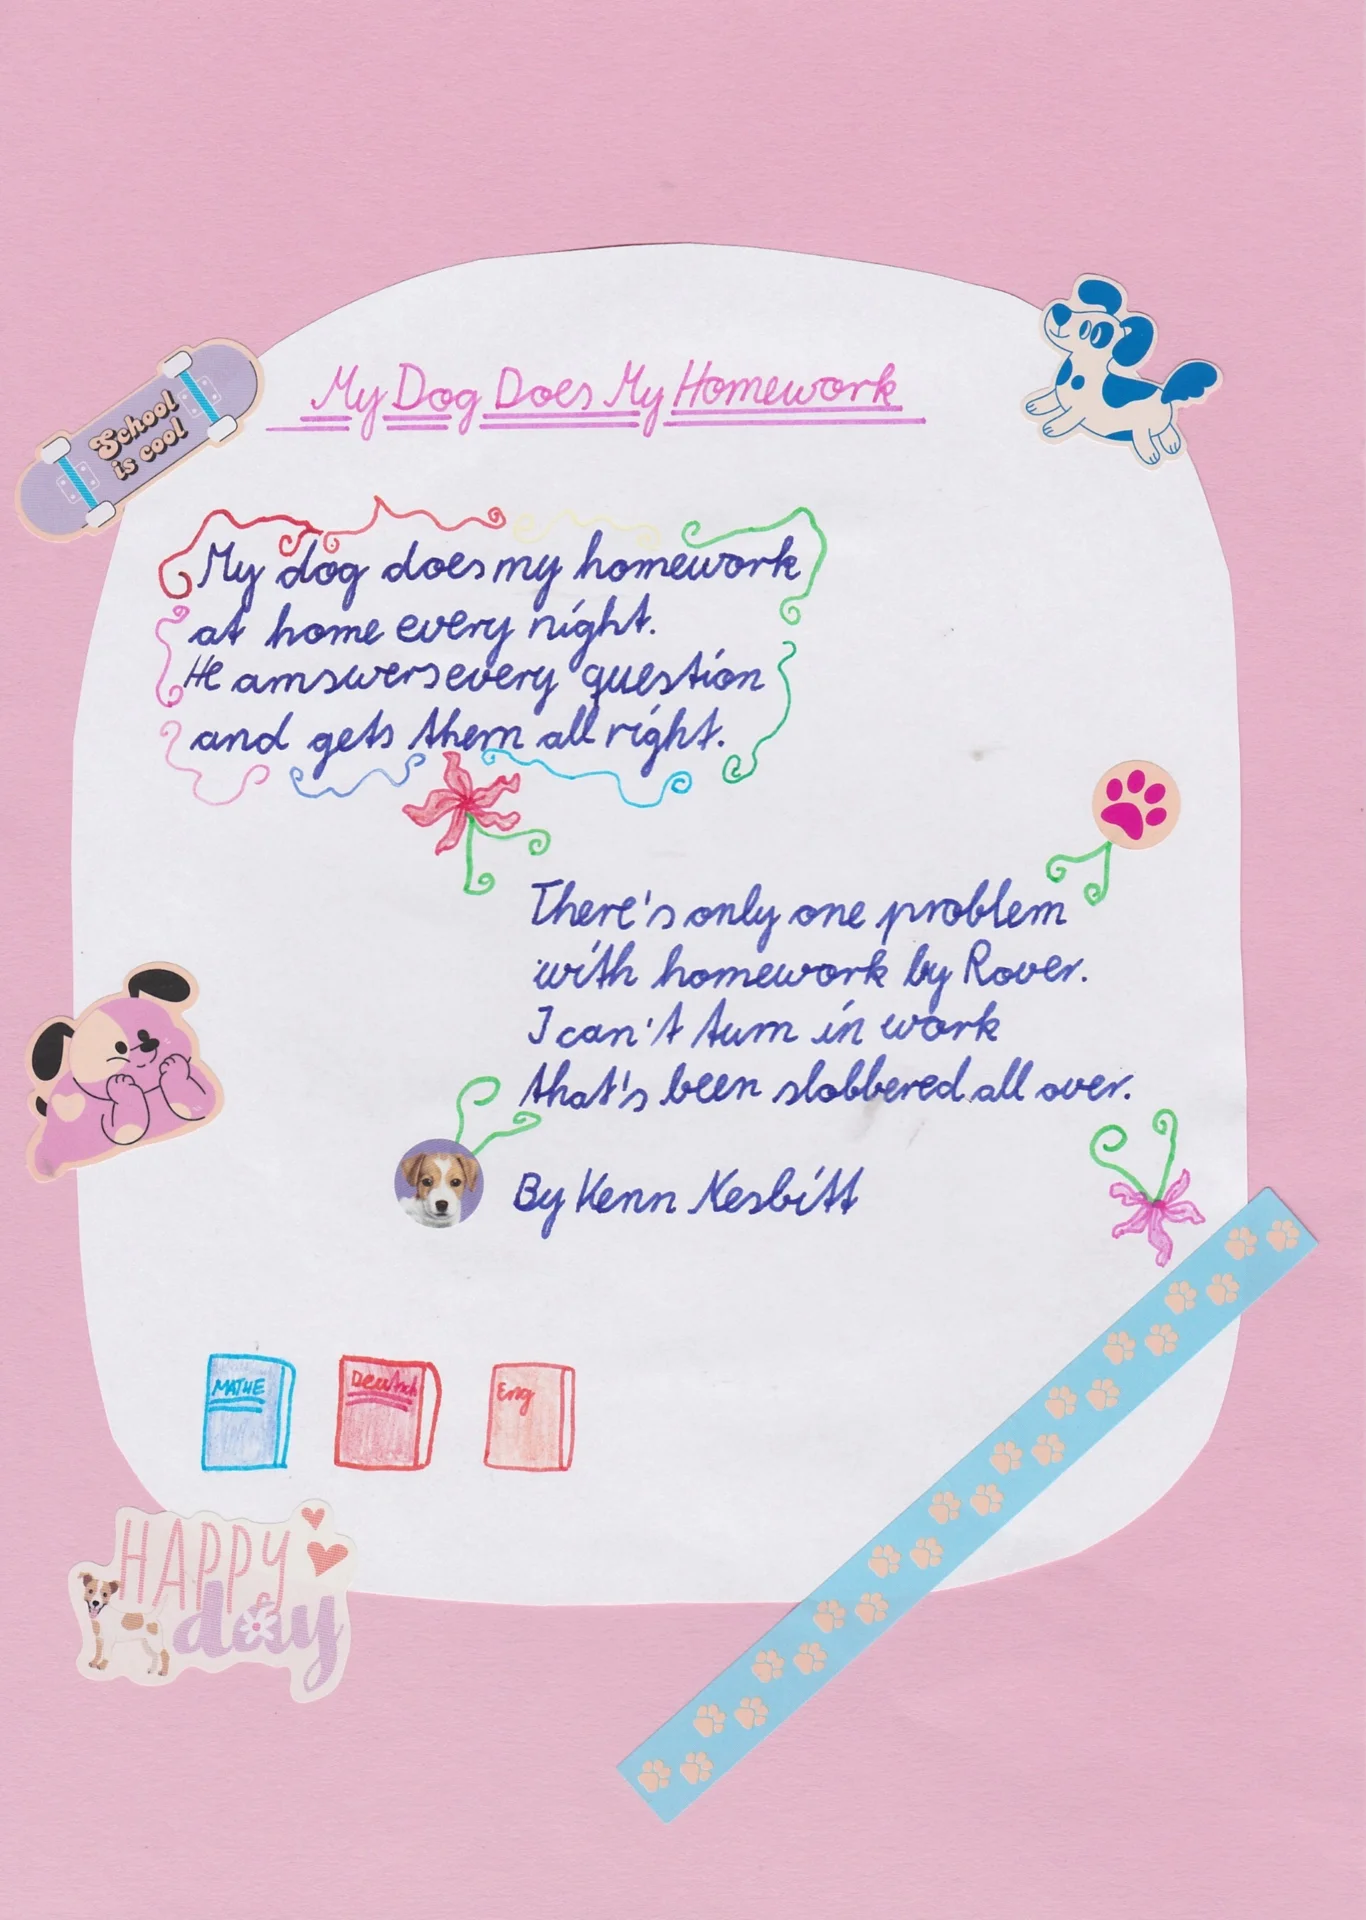 My Dog Does My Homework
School
is cool
My dog does my homework
at home every night.
He amswers every question
and gets them all right.
There's only one problem
with homework by Rover.
I can't turn in work
that's been slobbered all over.
By Kenn Nesbitt
MATHE
Deutsch
Eng
HAPPY
day